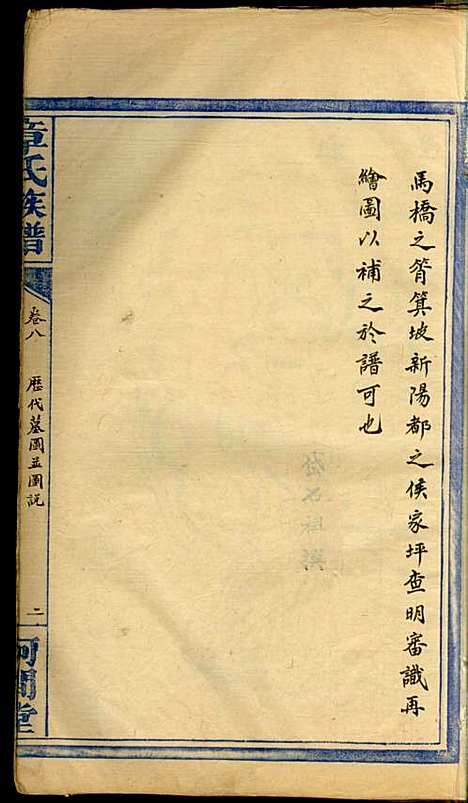 馬橋之筲箕坡新陽都之侯家坪查明審識再
繪圖以補之於譜可也
章氏族譜
卷八 歷代墓圖並圖説 二
河間堂